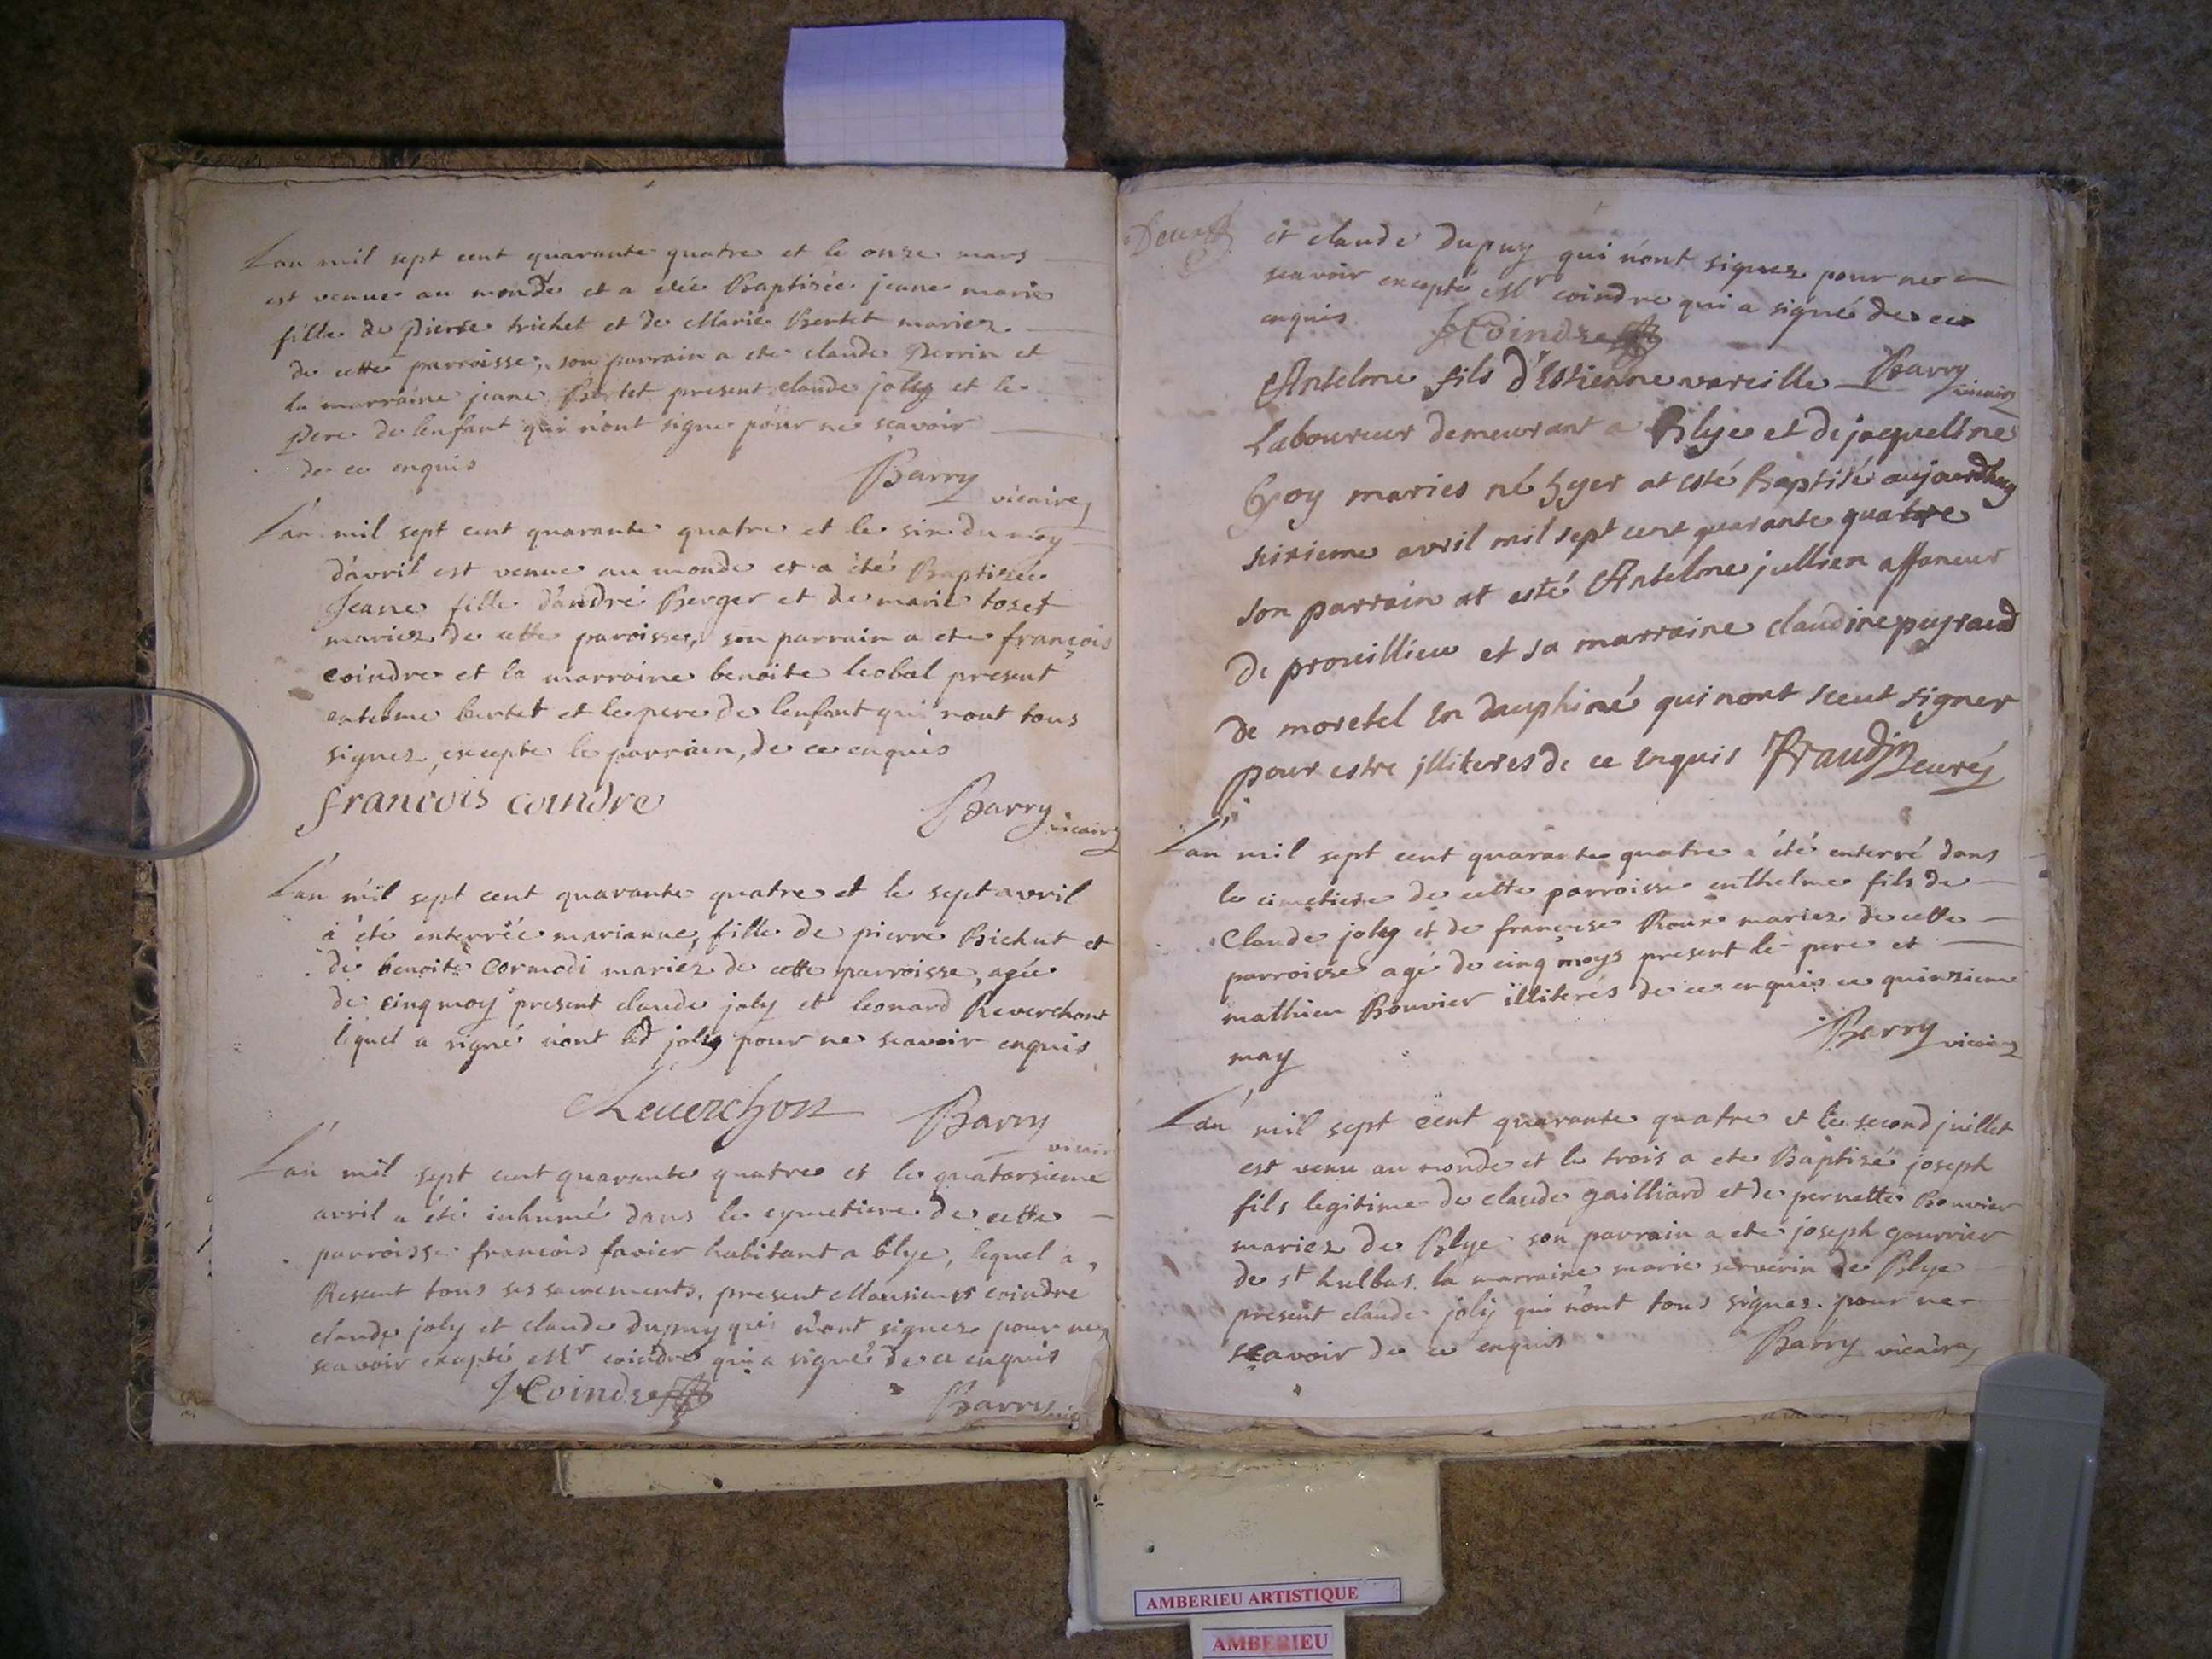 L'an mil sept cent quarante quatre et le onze mars
est venue au monde et a etée Baptisée jeane marie
fille de Pierre trichet et de Marie Bertet mariez
de cette parroisse, son parrain a ete claude Perrin et
la marraine jeane Bertet present claude joly et le
Pere de lenfant qui n'ont signe pour ne sçavoir
de ce enquis
Barry vicaire
L'an mil sept cent quarante quatre et le six du moy
d'avril est venue au monde et a été Baptisée
Jeane fille d'andré Berger et de marie toset
mariez de cette paroisse, son parrain a ete françois
coindre et la marraine benoite present
antelme bertet et le pere de lenfant qui n'ont tous
signez, excepte le parrain, de ce enquis
francois coindre
Barry vicaire
L'an mil sept cent quarante quatre et le sept avril
à été enterrée marianne, fille de pierre Bichut et
de benoite Cormodi mariez de cette parroisse, agée
de cinq moy present claude joly et leonard Reverchont
lequel a signé n'ont led joly pour ne scavoir enquis
Reuerchon
Barry vicair
L'an mil sept cent quarante quatre et le quatorsieme
avril a été inhumé dans le cymetiere de cette
parroisse francois favier habitant a blye, lequel a
Reseut tous ses sacrements. present Monsieur coindre
claude joly et claude dupuy qui n'ont signez pour ne
scavoir excepté Mr coindre qui a signé de ce enquis
JCoindre
Barry
et claude Dupuy qui n'ont signez pour ne
scavoir excepté Mr coindre qui a signé de ce
enquis
JCoindre
Barry vicaire
Antelme fils d'Estienne vareille
Laboureur demeurant a Blye et de jaquelline
Goy maries né hyer at esté Baptisé aujourdhuy
sixieme avril mil sept cent quarante quatre
son parrain at esté Antelme jullien affaneur
de proueillieu et sa marraine claudine puyraud
de moretel En dauphiné qui nont sceut signer
pour estre jlliteres de ce Enquis Fraudin curé
L'an mil sept cent quarante quatre a été enterré dans
le cimetiere de cette parroisse enthelme fils de
Claude joly et de françoise Roux mariez de cette
parroisse agé de cinq moys present le pere et
mathieu Bouvier illiterés de ce enquis ce quinzieme
may
Barry vicaire
L'an mil sept cent quarante quatre et le second juillet
est venu au monde et le trois a ete Baptizé joseph
fils legitime de claude gailliard et de pernette Bouvier
mariez de Blye son parrain a ete joseph gourrier
de st hulbas. la marraine marie serverin de Blye
present claude joly qui n'ont tous signez. pour ne
scavoir de ce enquis
Barry vicaire
AMBERIEU ARTISTIQUE
AMBERIEU